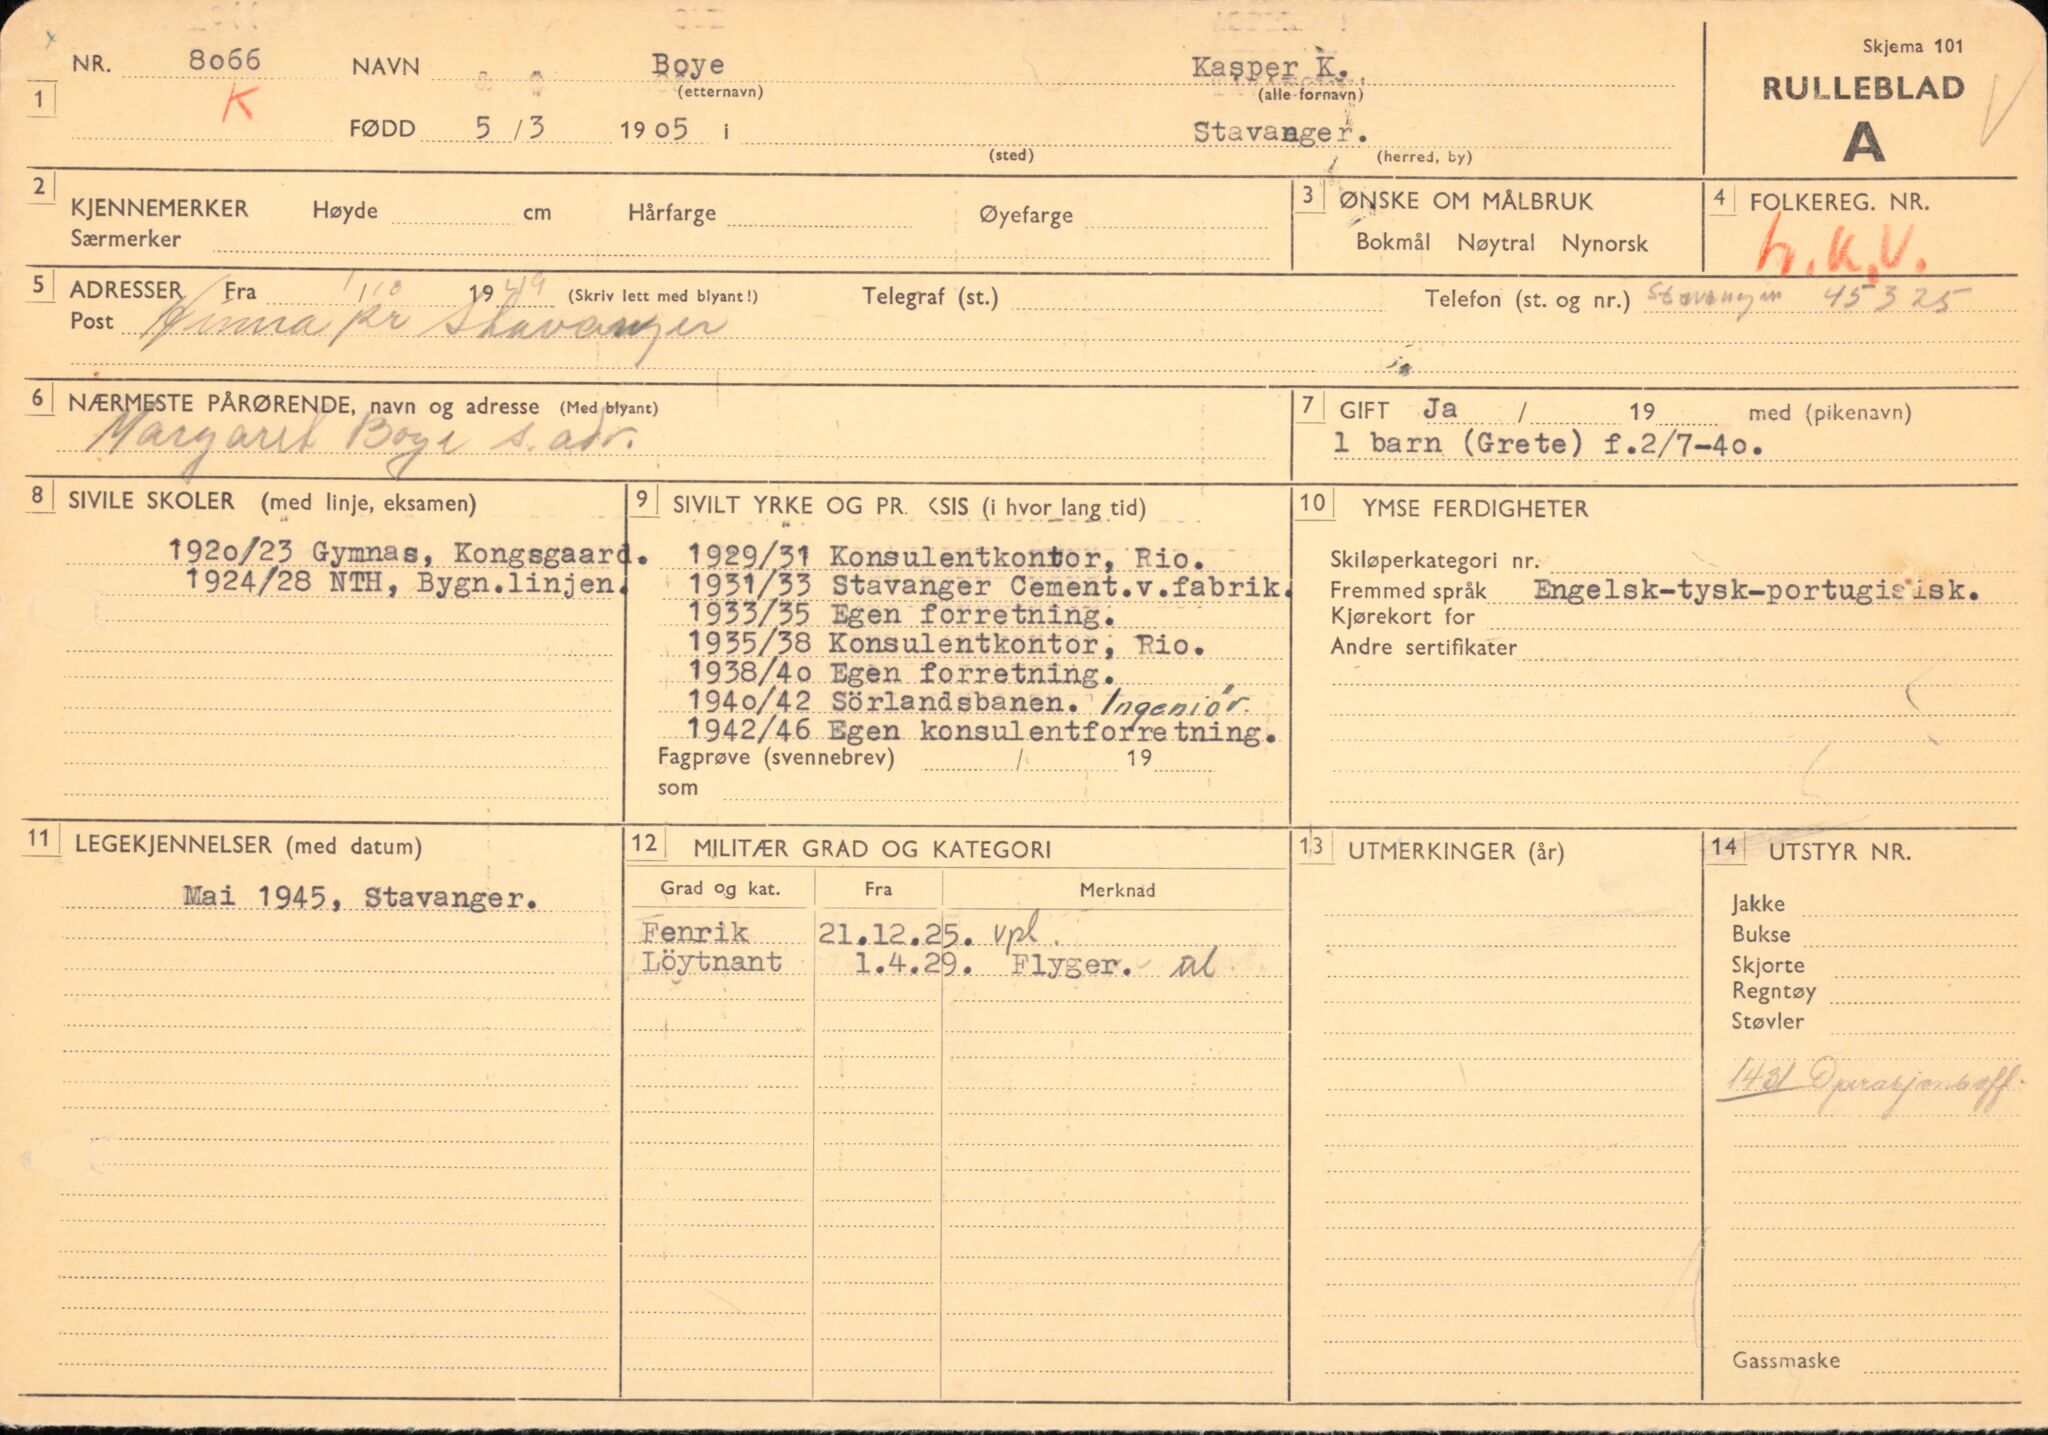 Skjema 101
RULLEBLAD
A
1
NR. 8066
K
NAVN Boye Kasper K.
(etternavn) (alle fornavn)
FØDD 5/3 1905 i Stavanger.
(sted) (herred, by)
2 KJENNEMERKER Høyde cm Hårfarge Øyefarge
Særmerker
3 ØNSKE OM MÅLBRUK
Bokmål Nøytral Nynorsk
4 FOLKEREG. NR.
5 ADRESSER Fra 1/10 1949 (Skriv lett med blyant!) Telegraf (st.) Telefon (st. og nr.) Stavanger 45325
Post Hinna pr Stavanger
6 NÆRMESTE PÅRØRENDE, navn og adresse (Med blyant)
Margaret Boye s. adr.
7 GIFT Ja / 19 med (pikenavn)
1 barn (Grete) f.2/7-40.
8 SIVILE SKOLER (med linje, eksamen)
1920/23 Gymnas, Kongsgaard.
1924/28 NTH, Bygn.linjen.
9 SIVILT YRKE OG PR KSIS (i hvor lang tid)
1929/31 Konsulentkontor, Rio.
1931/33 Stavanger Cement.v.fabrik.
1933/35 Egen forretning.
1935/38 Konsulentkontor, Rio.
1938/40 Egen forretning.
1940/42 Sörlandsbanen. Ingeniör.
1942/46 Egen konsulentforretning.
Fagprøve (svennebrev) / 19
som
10 YMSE FERDIGHETER
Skiløperkategori nr.
Fremmed språk Engelsk-tysk-portugisisk.
Kjørekort for
Andre sertifikater
11 LEGEKJENNELSER (med datum)
Mai 1945, Stavanger.
12 MILITÆR GRAD OG KATEGORI
Grad og kat. Fra Merknad
Fenrik 21.12.25. vpl.
Löytnant 1.4.29. Flyger. al
13 UTMERKINGER (år)
14 UTSTYR NR.
Jakke
Bukse
Skjorte
Regntøy
Støvler
1431 Operasjonsoff.
Gassmaske